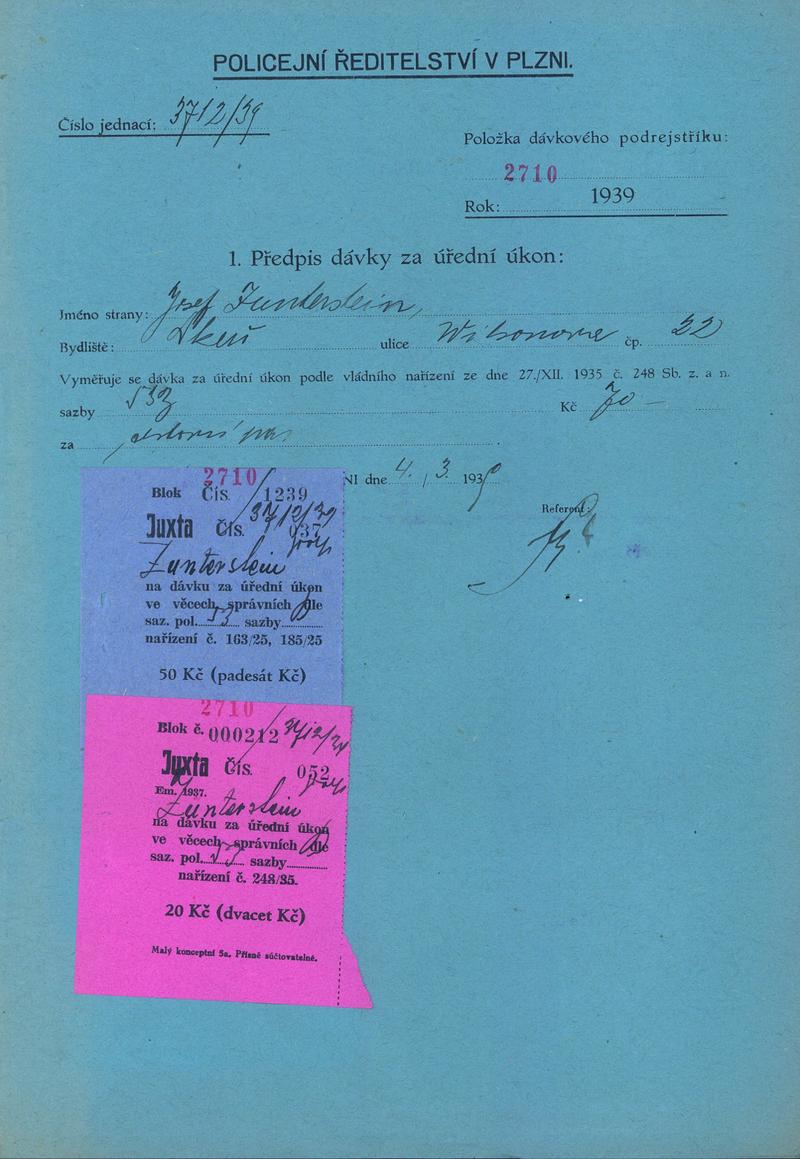 POLICEJNÍ ŘEDITELSTVÍ V PLZNI.
Číslo jednací: 3712/39
Položka dávkového podrejstříku:
2710
Rok: 1939
1. Předpis dávky za úřední úkon:
Jméno strany: Josef Zunterstein,
Bydliště: ulice Wilsonova čp. 22
Vyměřuje se dávka za úřední úkon podle vládního nařízení ze dne 27./XII. 1935 č. 248 Sb. z. a n.
sazby 53 Kč 70 –
za cestovní pas
NI dne 4. / 3. 1939
Referent:
2710
Blok Čís. 1239
3712/39
Juxta Čís. 037
Josef
Zunterstein
na dávku za úřední úkon
ve věcech správních dle
saz. pol. 53 sazby
nařízení č. 163/25, 185/25
50 Kč (padesát Kč)
2710
Blok č. 000212 3712/39
Juxta Čís. 052
Josef
Em. 1937.
Zunterstein
na dávku za úřední úkon
ve věcech správních dle
saz. pol. 53 sazby
nařízení č. 248/35.
20 Kč (dvacet Kč)
Malý konceptní 5a. Přísně súčtovatelné.